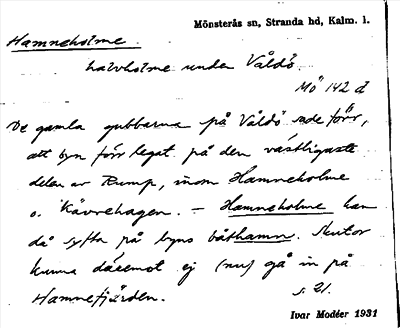 Mönsterås sn, Stranda hd, Kalm. l.
Hamneholme.
halvholme under Våldö.
Mö 142 d
De gamla gubbarna på Våldö sade förr,
att byn förr legat på den västligaste
delen av Rump, inom Hamneholme
o. Kävrehagen. – Hamneholme kan
då syfta på byns båthamn. Skutor
kunna däremot ej (nu) gå in på
Hamnefjärden.
s. 21.
Ivar Modéer 1931